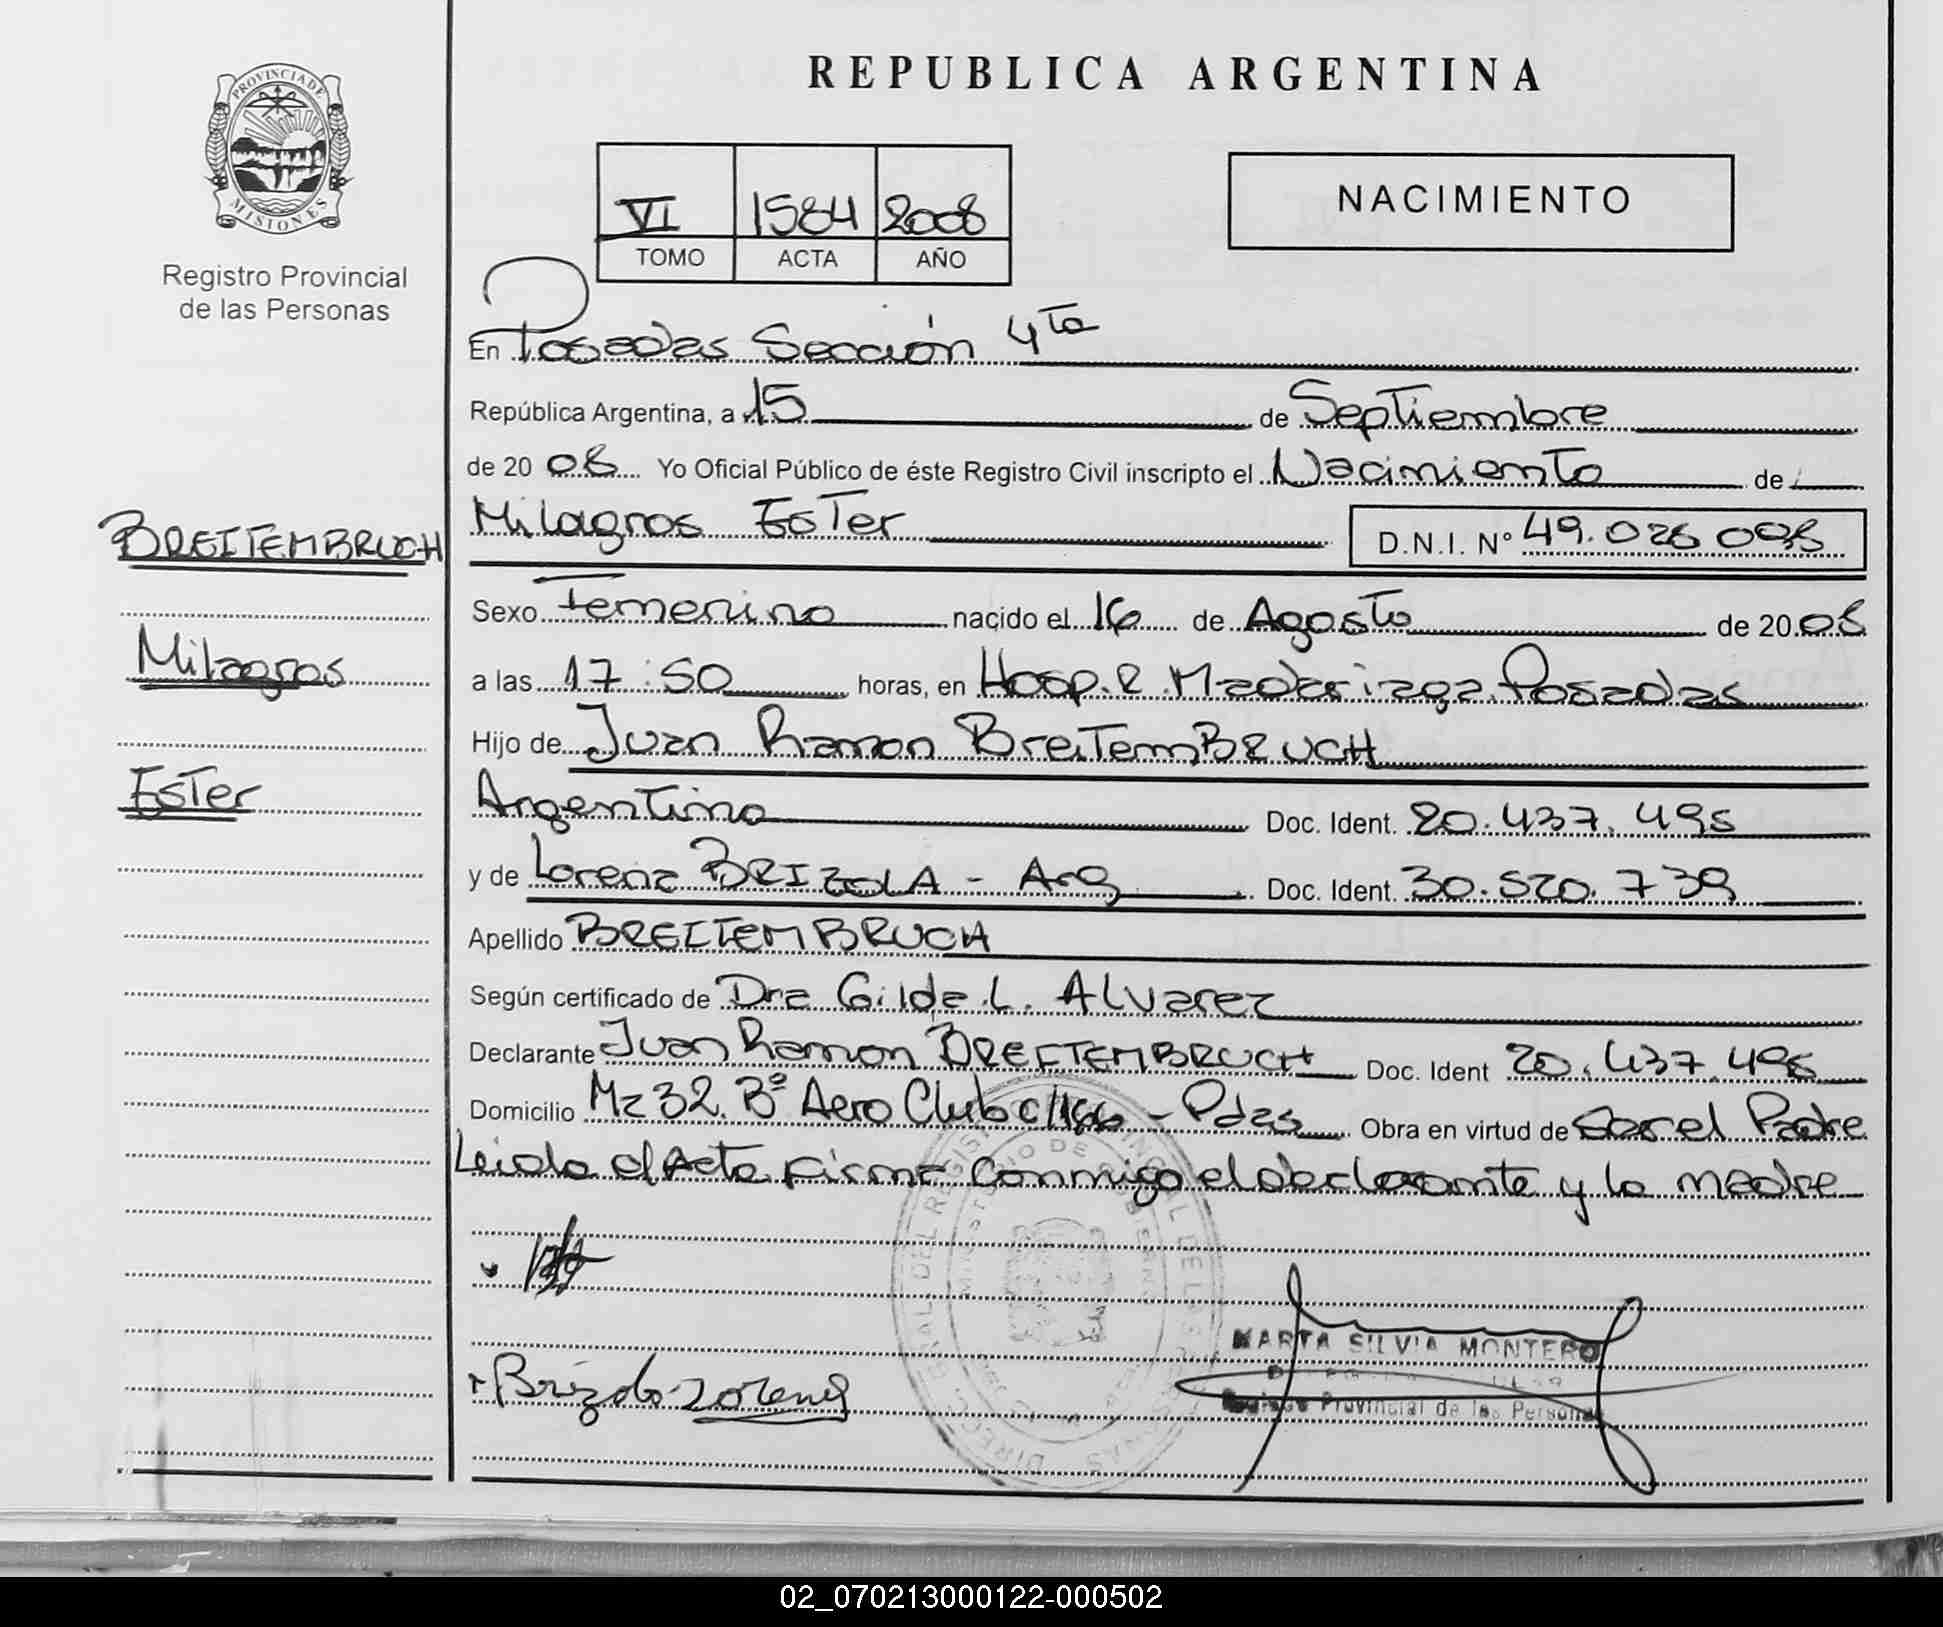 REPUBLICA ARGENTINA
PROVINCIA DE
MISIONES
Registro Provincial
de las Personas
VI 1584 2008
TOMO ACTA AÑO
NACIMIENTO
En Posadas Sección 4ta
República Argentina, a 15 de Septiembre
de 20 08 Yo Oficial Público de éste Registro Civil inscripto el Nacimiento de
Milagros Ester D.N.I. Nº 49.026 098
BREITEMBRUCH
Milagros
Ester
Sexo Femenino nacido el 16 de Agosto de 20 08
a las 17:50 horas, en Hosp. R. Madariaga. Posadas
Hijo de Juan Ramon BreitemBRUCH
Argentino Doc. Ident. 20.437.495
y de Lorena BRIZOLA - Arg Doc. Ident. 30.520.739
Apellido BREITEMBRUCH
Según certificado de Dra Gilda L. Alvarez
Declarante Juan Ramon BREITEMBRUCH Doc. Ident 20.437.495
Domicilio Mz 32. Bº Aero Club c/166 - Pdas Obra en virtud de Ser el Padre
Leida el Acta firma conmigo el declarante y la madre
Brizola Lorena
MARTA SILVIA MONTERO
Registro Provincial de las Personas
02_070213000122-000502